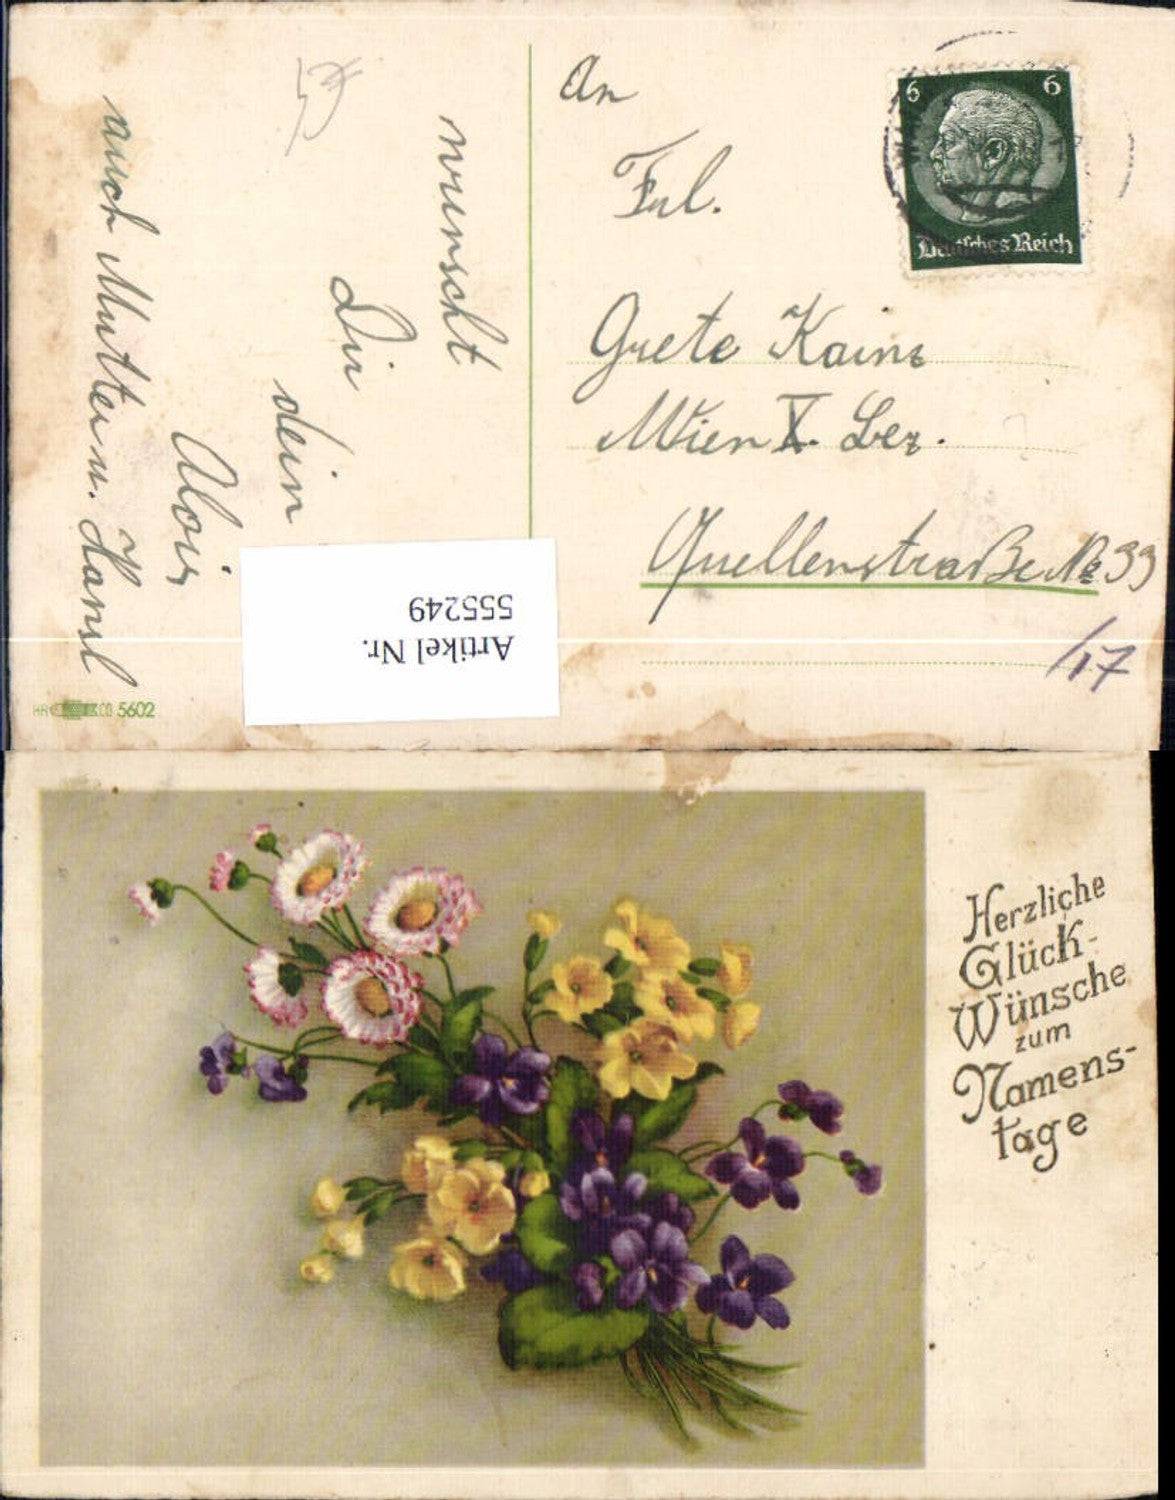 An
Frl.
Grete Kainz
Wien X. Bez.
Quellenstraße No 33
/17
6 6
Deutsches Reich
wünscht
Dir
dein
Alois
auch Mutter u. Hansl
Artikel Nr.
555249
CO 5602
Herzliche
Glück-
Wünsche
zum
Namens-
tage